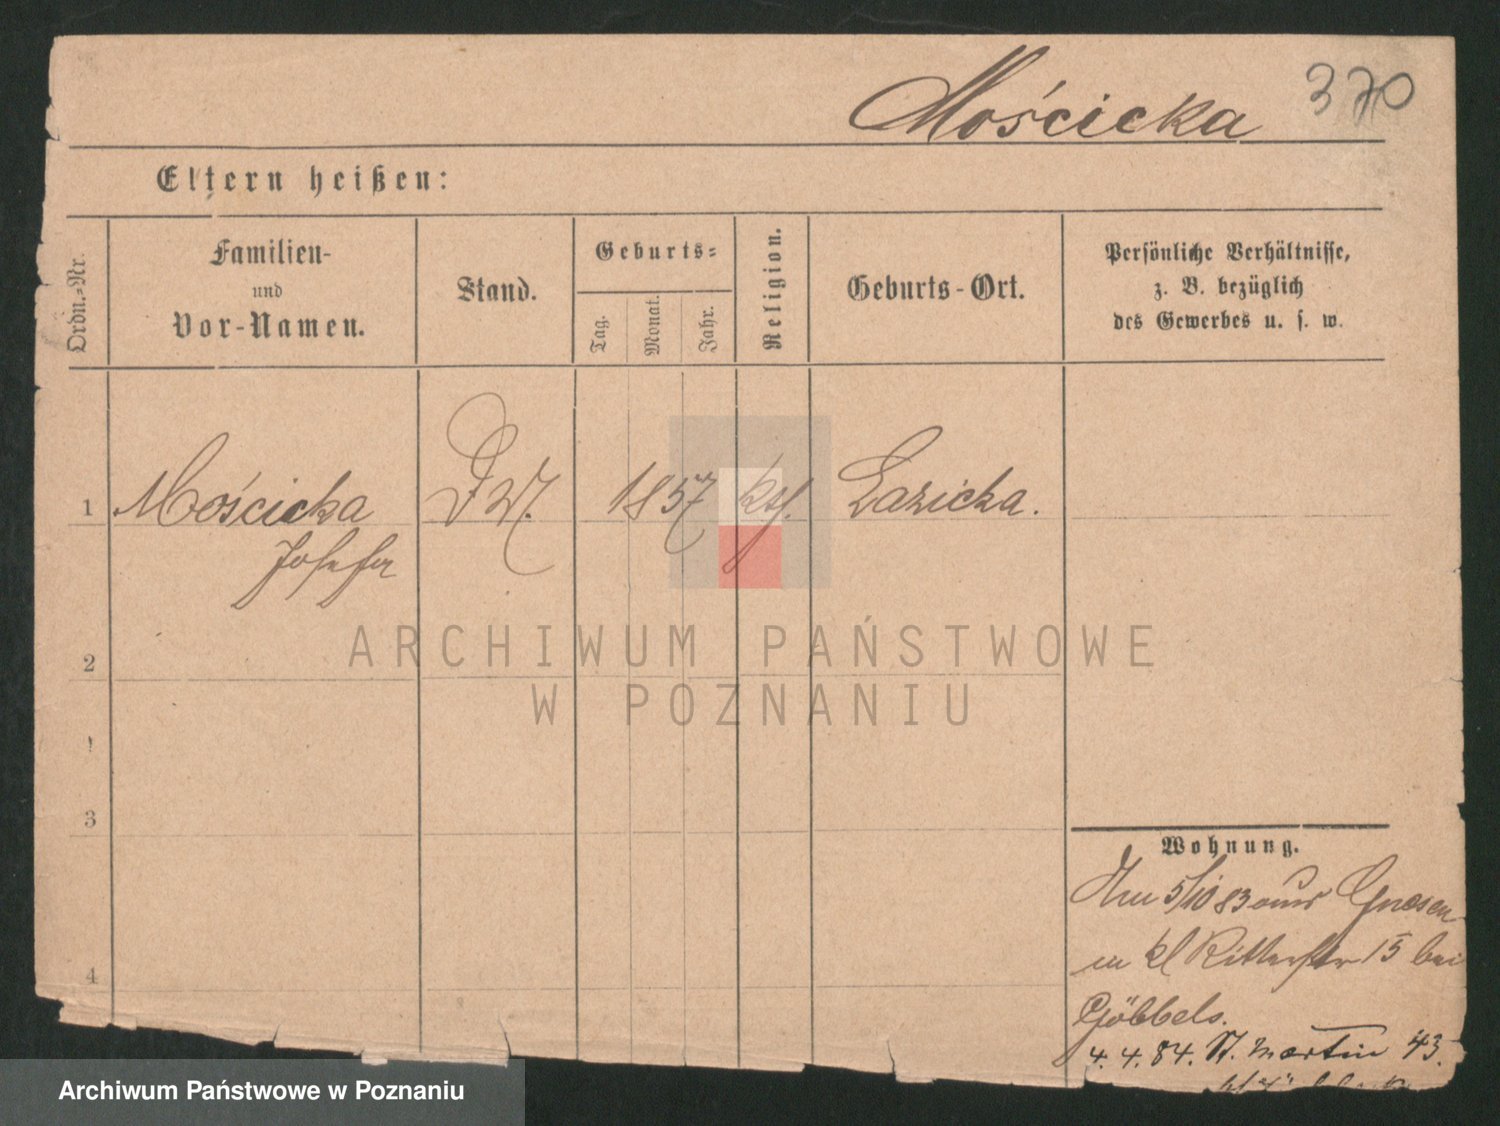 Mościcka 370
Eltern heißen:
Ordn.-Nr.
Familien-
und
Vor-Namen.
Stand.
Geburts-
Tag.
Monat.
Jahr.
Religion.
Geburts-Ort.
Persönliche Verhältnisse,
z. B. bezüglich
des Gewerbes u. s. w.
1 Mościcka 1857 kth.
Josefa
2
3
4
ARCHIWUM PAŃSTWOWE
W POZNANIU
Wohnung.
Am 5/10 83 aus Gnesen
in kl Ritterstr 15 bei
Göbbels.
4.4.84. St. Martin 43.
Archiwum Państwowe w Poznaniu